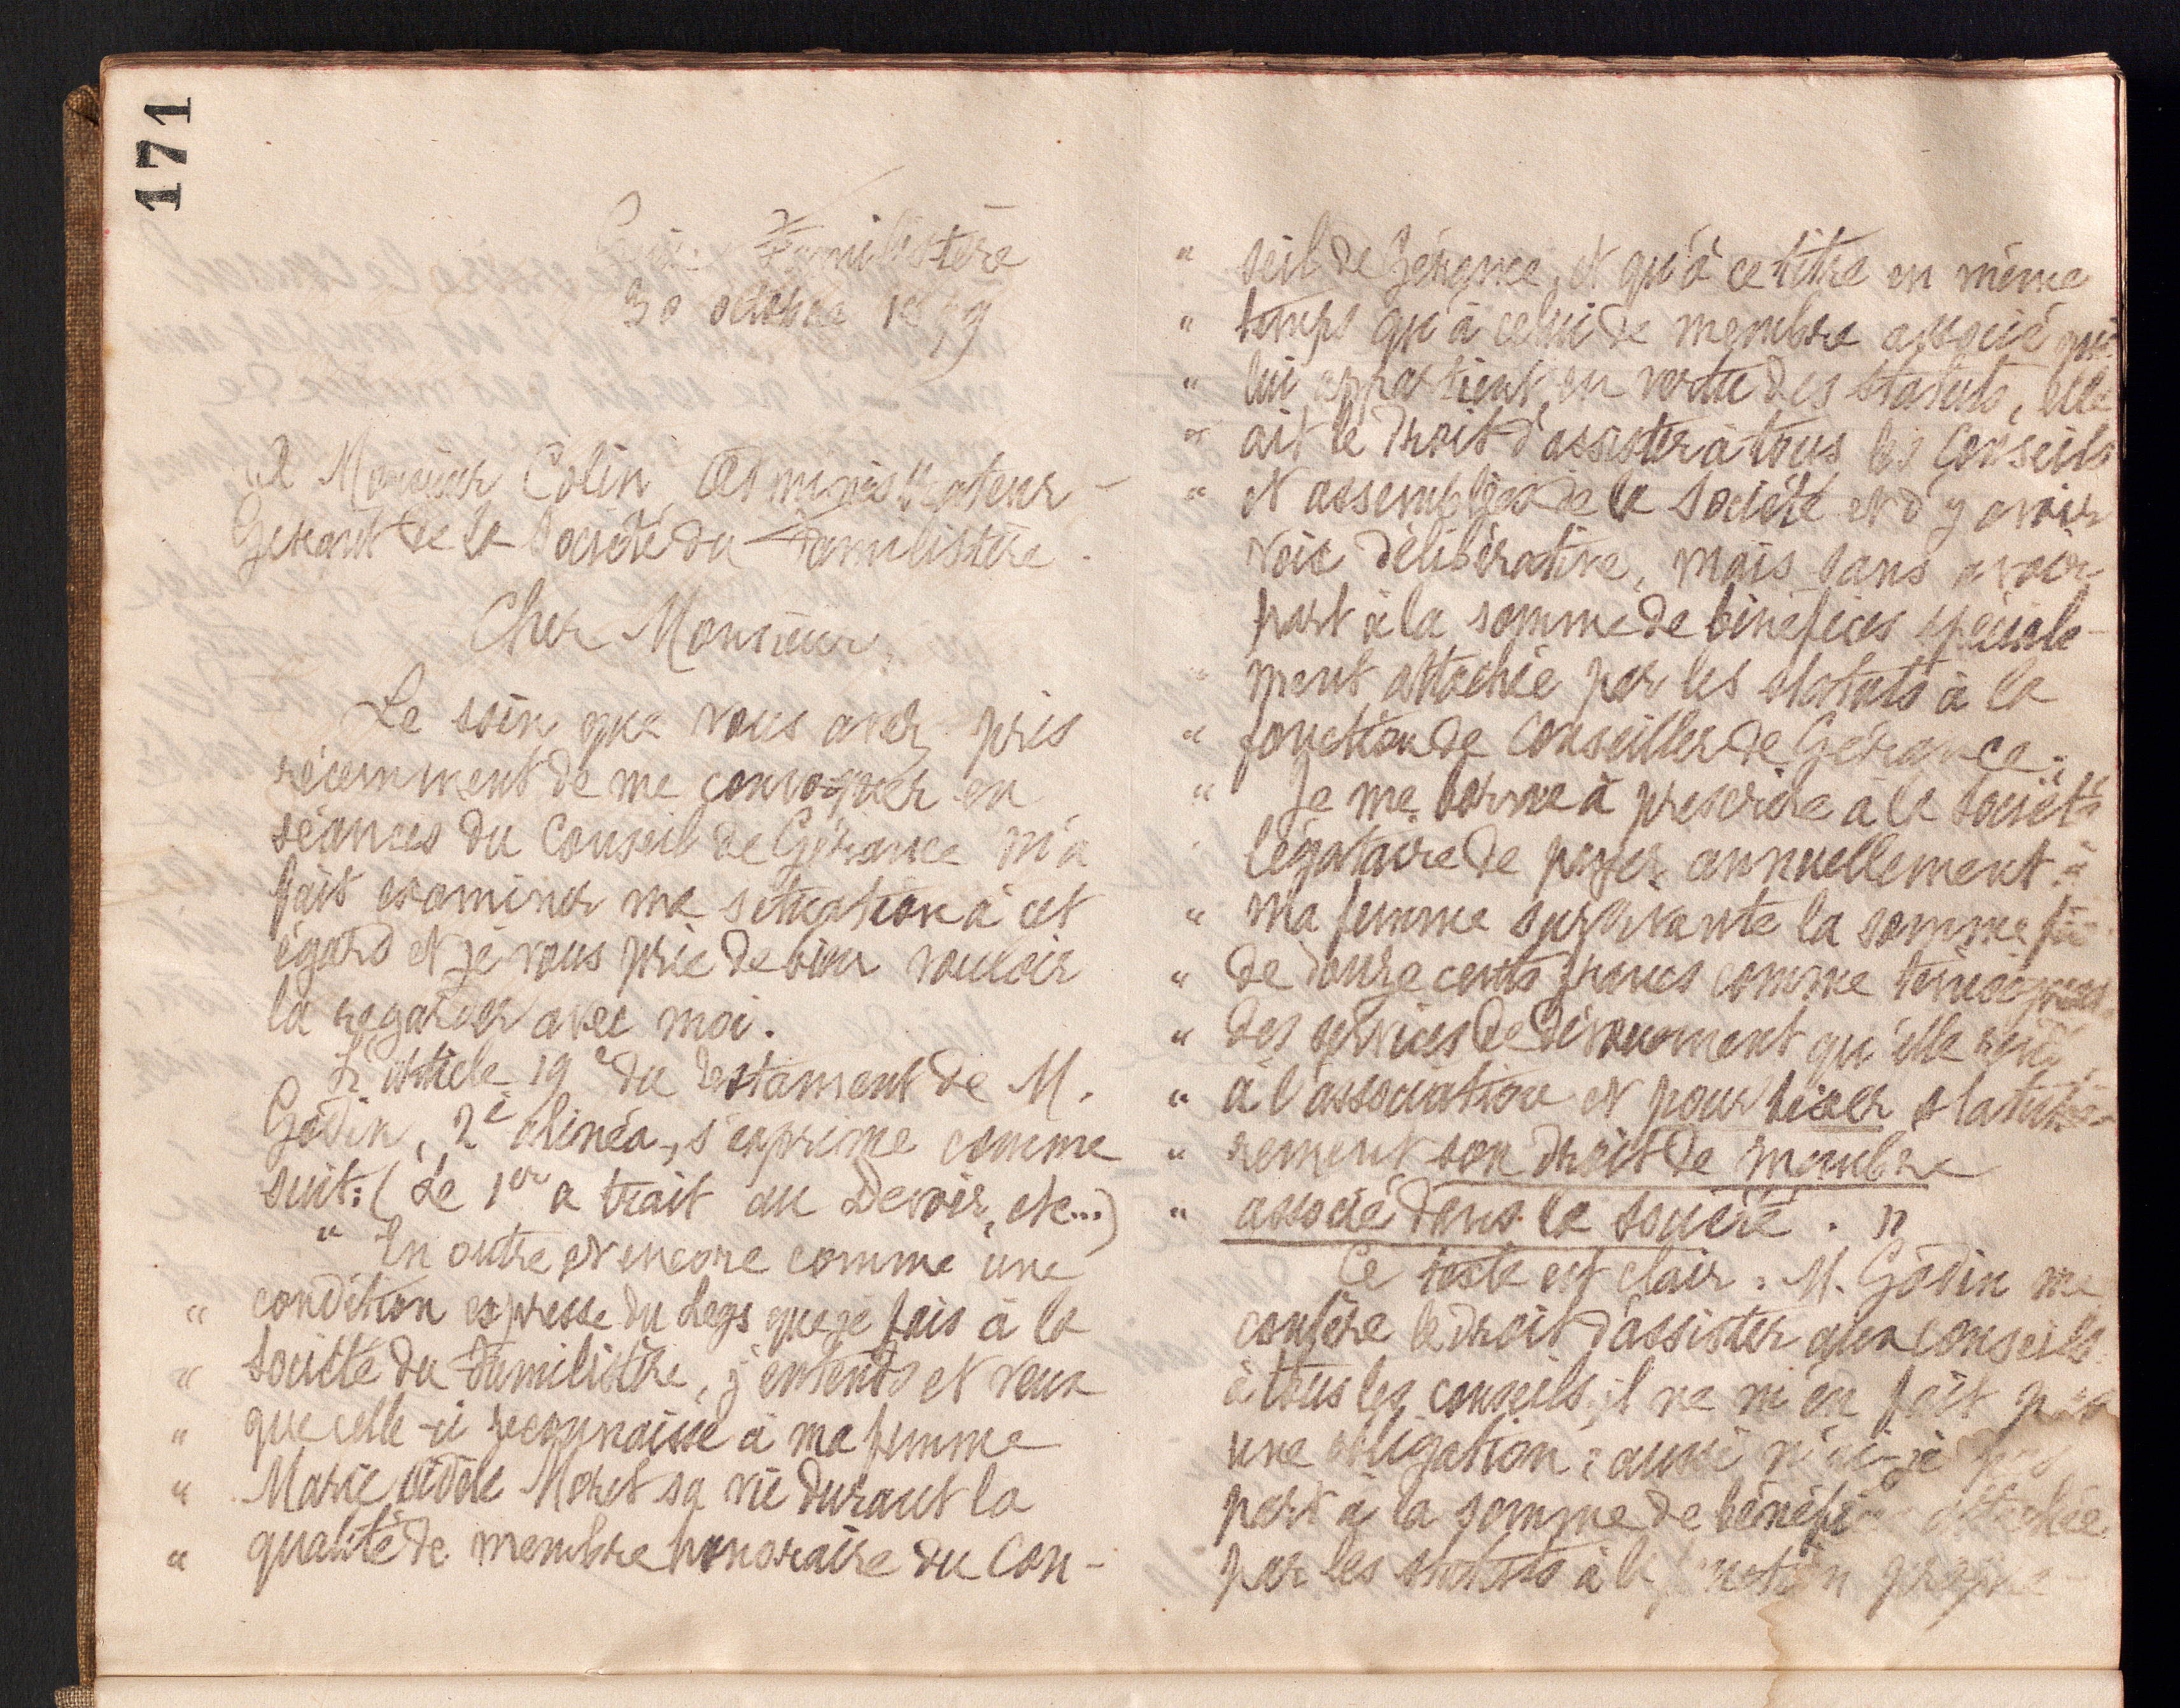 171
Guise Familistère
30 octobre 1899
A Monsieur Colin, Administrateur-
Gérant de la Société du Familistère.
Cher Monsieur,
Le soin que vous avez pris
récemment de me convoquer en
séances du Conseil de Gérance m'a
fait examiner ma situation à cet
égard et je vous prie de bien vouloir
la regarder avec moi.
L'article 19e du testament de M.
Godin, 2e alinéa, s'exprime comme
suit: (Le 1er a trait au Devoir, etc...)
" En outre et encore comme une
" condition expresse du Legs que je fais à la
" Société du Familistère, j'entends et veux
" que celle-ci reconnaisse à ma femme
" Marie Adèle Moret sa vie durant la
" qualité de membre honoraire du Con-
" seil de Gérance, et qu'à ce titre en même
" temps qu'à celui de membre associé qui
" lui appartient en vertu des statuts, elle
" ait le droit d'assister à tous les conseils
" et assemblées de la Société et d'y avoir
voix délibérative, mais sans avoir
part à la somme de bénéfices spéciale-
" ment attachée par les statuts à la
" fonction de Conseiller de Gérance.
" Je me borne à prescrire à la Société
légataire de payer annuellement à
" ma femme survivante la somme
" de douze cents francs comme
" des services de dévouement qu'elle
" à l'association et pour fixer
" rement son droit de membre
" associé dans la société. "
Ce texte est clair. M. Godin me
confère le droit d'assister aux conseils
à tous les conseils, il ne m'en fait pas
une obligation; aussi n'ai-je pas
part à la somme de bénéfices attachée
par les statuts à la fonction